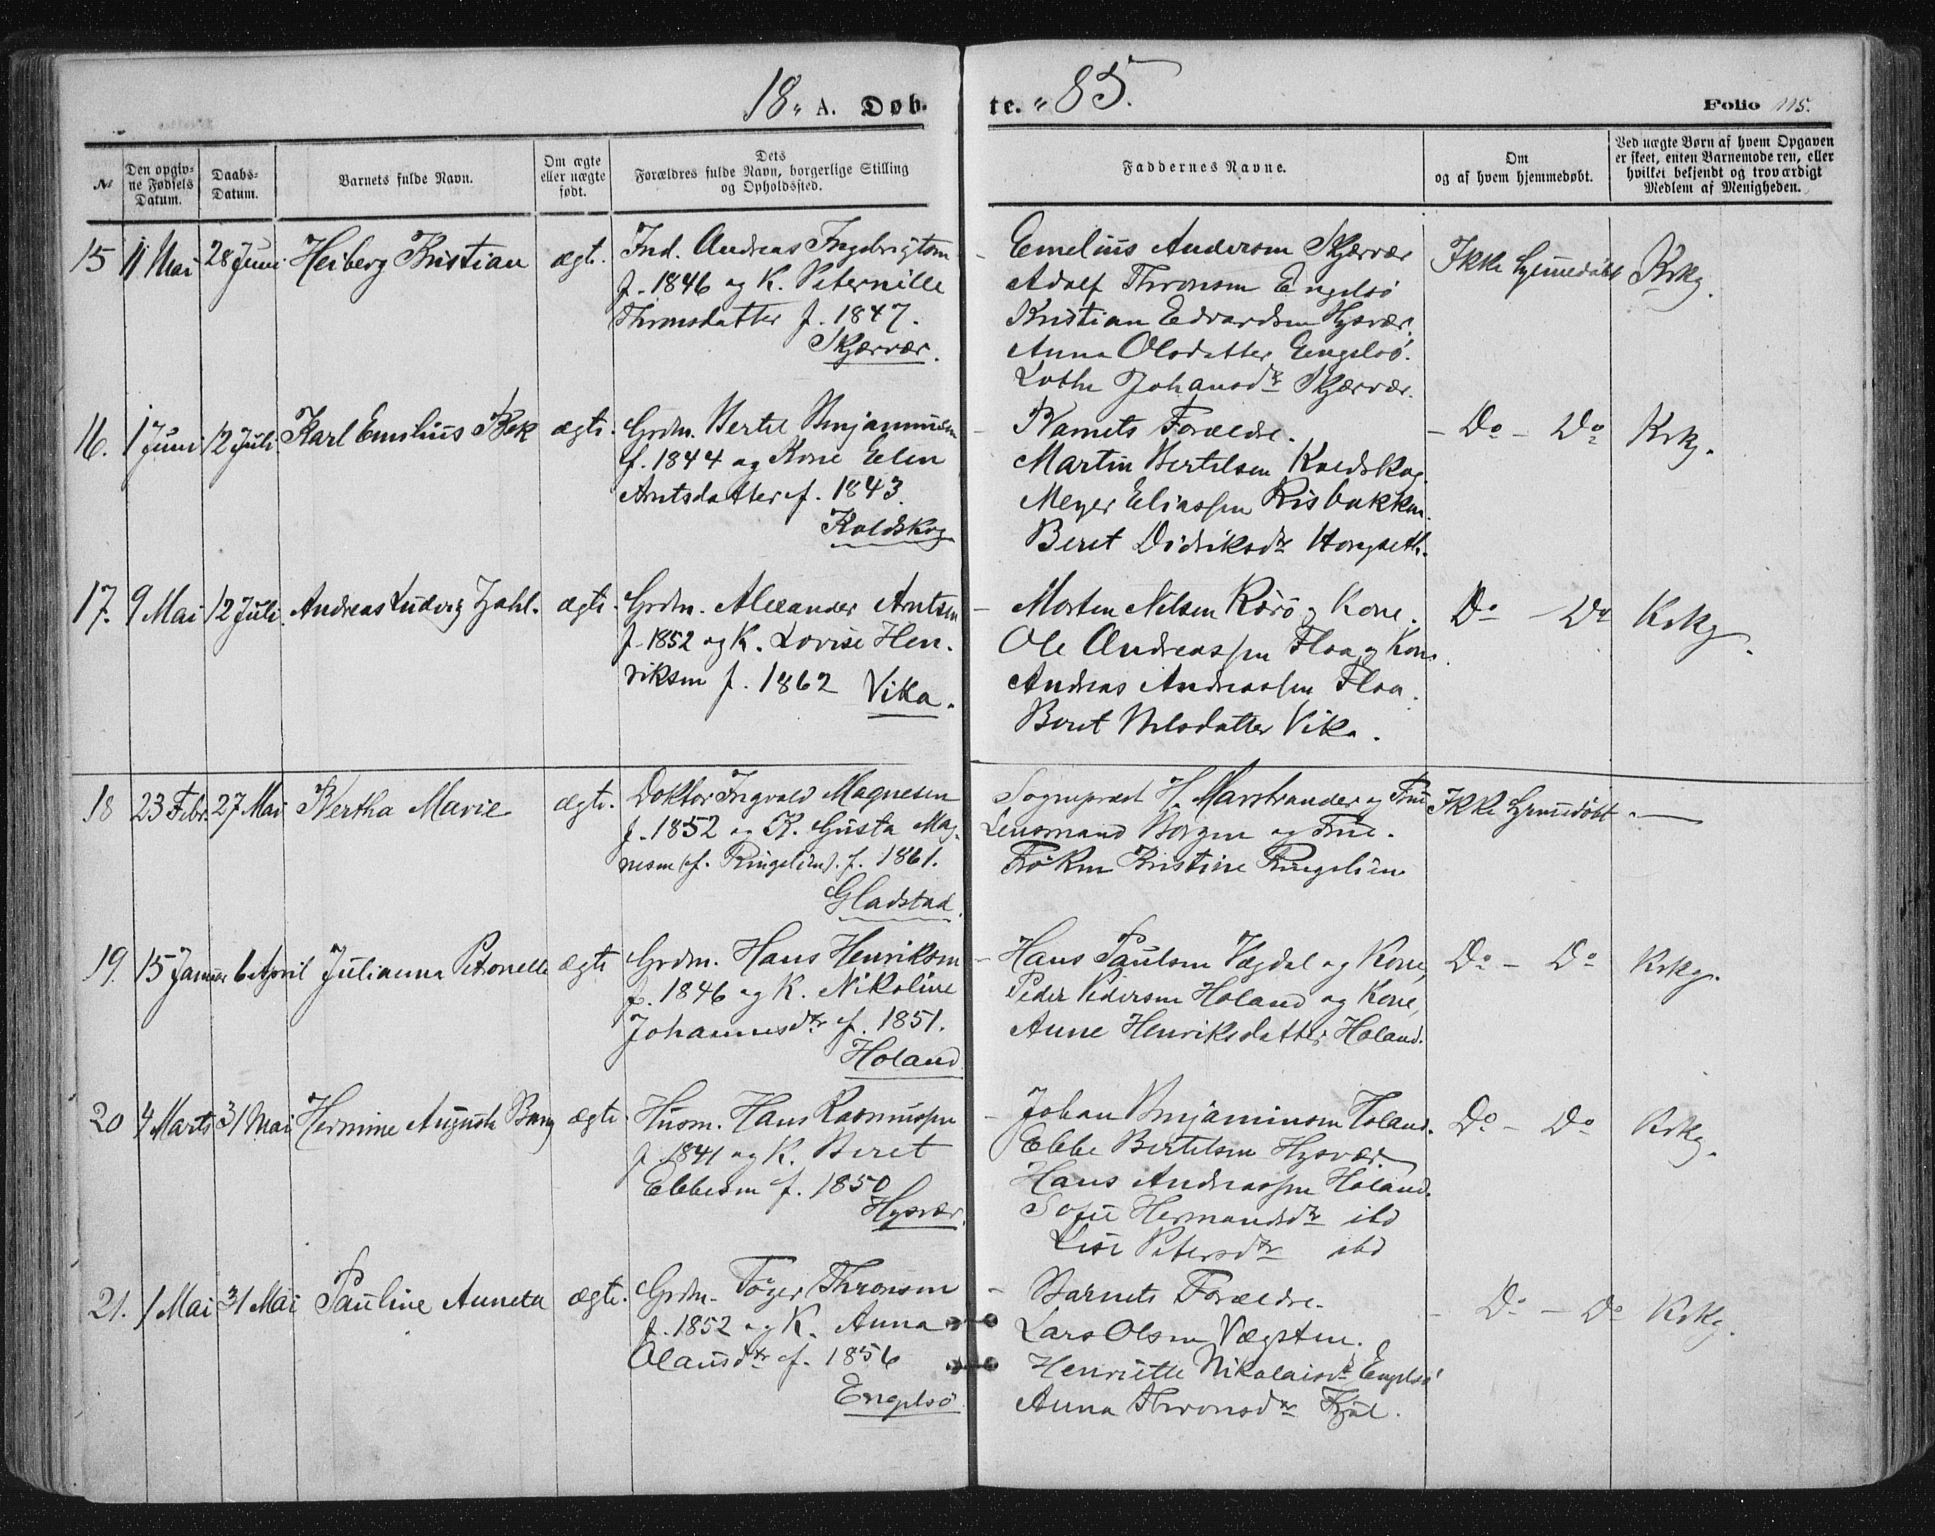 18 „ A. Døbte. „ 85.
Folio 115.
№
Den opgivne Fødsels Datum.
Daabs-Datum.
Barnets fulde Navn.
Om ægte eller uægte født.
Dets Forældres fulde Navn, borgerlige Stilling og Opholdssted.
Faddernes Navne.
Om og af hvem hjemmedøbt.
Ved uægte Børn af hvem Opgaven er skeet, enten Barnemoderen, eller hvilket bekjendt og troværdigt Medlem af Menigheden.
15 11 Mai 28 Juni Heiberg Kristian ægt.
Ind. Andreas Ingebrigtsen
f. 1846 og K. Peternille
Thronsdatter f. 1847.
Skjærvær.
Emelius Andersen Skjærvær
Adolf Thronsen Engelsö
Kristian Edvardsen Hysvær.
Anna Olsdatter Engelsö.
Johansdtr Skjærvær.
Ikke hjemmedöbt Krkg.
16. 1 Juni 12 Juli Karl Emilius Bek ægte.
Grdm. Bertel Benjaminsen
f. 1844 og Kone Elen
Arntsdatter f. 1843.
Koldskog
Barnets Forældre.
Martin Bertelsen Koldskog
Meyer Eliassen Risbakken.
Beret Didriksdtr Hongseth.
– Do – Do Krkg.
17. 9 Mai 12 Juli. Andreas Ludvig Zahl. ægte.
Grdm. Alexander Arntsen
f. 1852 og K. Lovise Hen-
riksen f. 1862 Vika.
Morten Nilsen Rörö og Kone.
Ole Andreassen Floa og Kone.
Andreas Andreassen Floa.
Beret Nilsdatter Vika.
Do – Do Krkg.
18 23 Febr. 27 Mai Bertha Marie ægte.
Doktor Ingvald Magnesen
f. 1852 og K. Gusta Mag-
nesen (f. Ringelien). f. 1861.
Gladstad.
Sognepræst H. Marstrander og Frue
Lensmand Borgen og Frue.
Fröken Kristine Ringelien
Ikke hjemmedöbt. —
19. 15 Januar 6 April Julianna Petronelle ægte
Grdm. Hans Henriksen
f. 1846 og K. Nikoline
Johannesdtr f. 1851.
Holand
– Hans Paulsen Vægdal og Kone,
Peder Pedersen Holand og Kone,
Anne Henriksdatter Holand.
Do – Do Krkg.
20 4 Marts 31 Mai Hermine Auguste Bang ægte.
Husm. Hans Rasmussen
f. 1841 og K. Beret
Ebbesen f. 1850
Hysvær.
– Johan Benjaminsen Holand.
Ebbe Bertelsen Hysvær.
Hans Andreassen Holand.
Sofie Hermansdtr ibd
Lise Petersdtr ibd
Do – Do Krkg.
21. 1 Mai 31 Mai Pauline Anneta ægte.
Grdm. Töger Thronsen
f. 1852 og K. Anna
Olausdtr f. 1856
Engelsö
– Barnets Forældre.
Lars Olsen Vægsten.
Henriette Nikolaisdtr Engelsö
Anna Thronsdtr
– Do – Do Krkg.